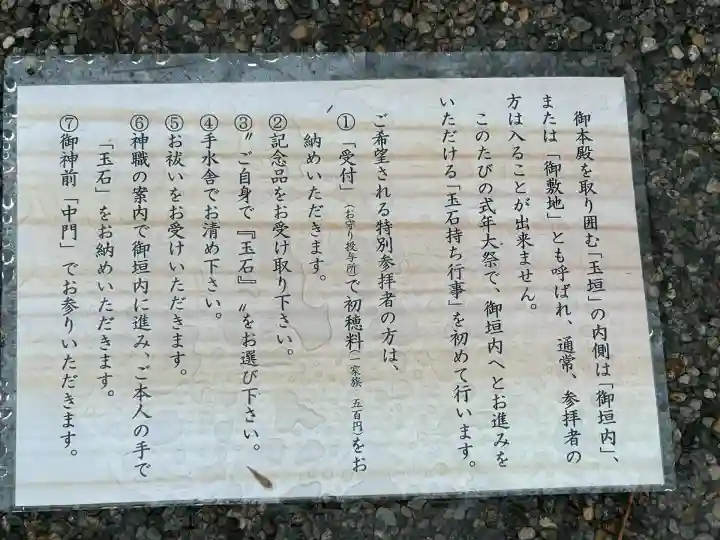 御本殿を取り囲む「玉垣」の内側は「御垣内」、
または「御敷地」とも呼ばれ、通常、参拝者の
方は入ることが出来ません。
このたびの式年大祭で、御垣内へとお進みを
いただける「玉石持ち行事」を初めて行います。
ご希望される特別参拝者の方は、
①「受付」(お守り授与所)で初穂料(一家族 五百円)をお
納めいただきます。
②記念品をお受け取り下さい。
③〝ご自身で『玉石』〟をお選び下さい。
④手水舎でお清め下さい。
⑤お祓いをお受けいただきます。
⑥神職の案内で御垣内に進み、ご本人の手で
「玉石」をお納めいただきます。
⑦御神前「中門」でお参りいただきます。